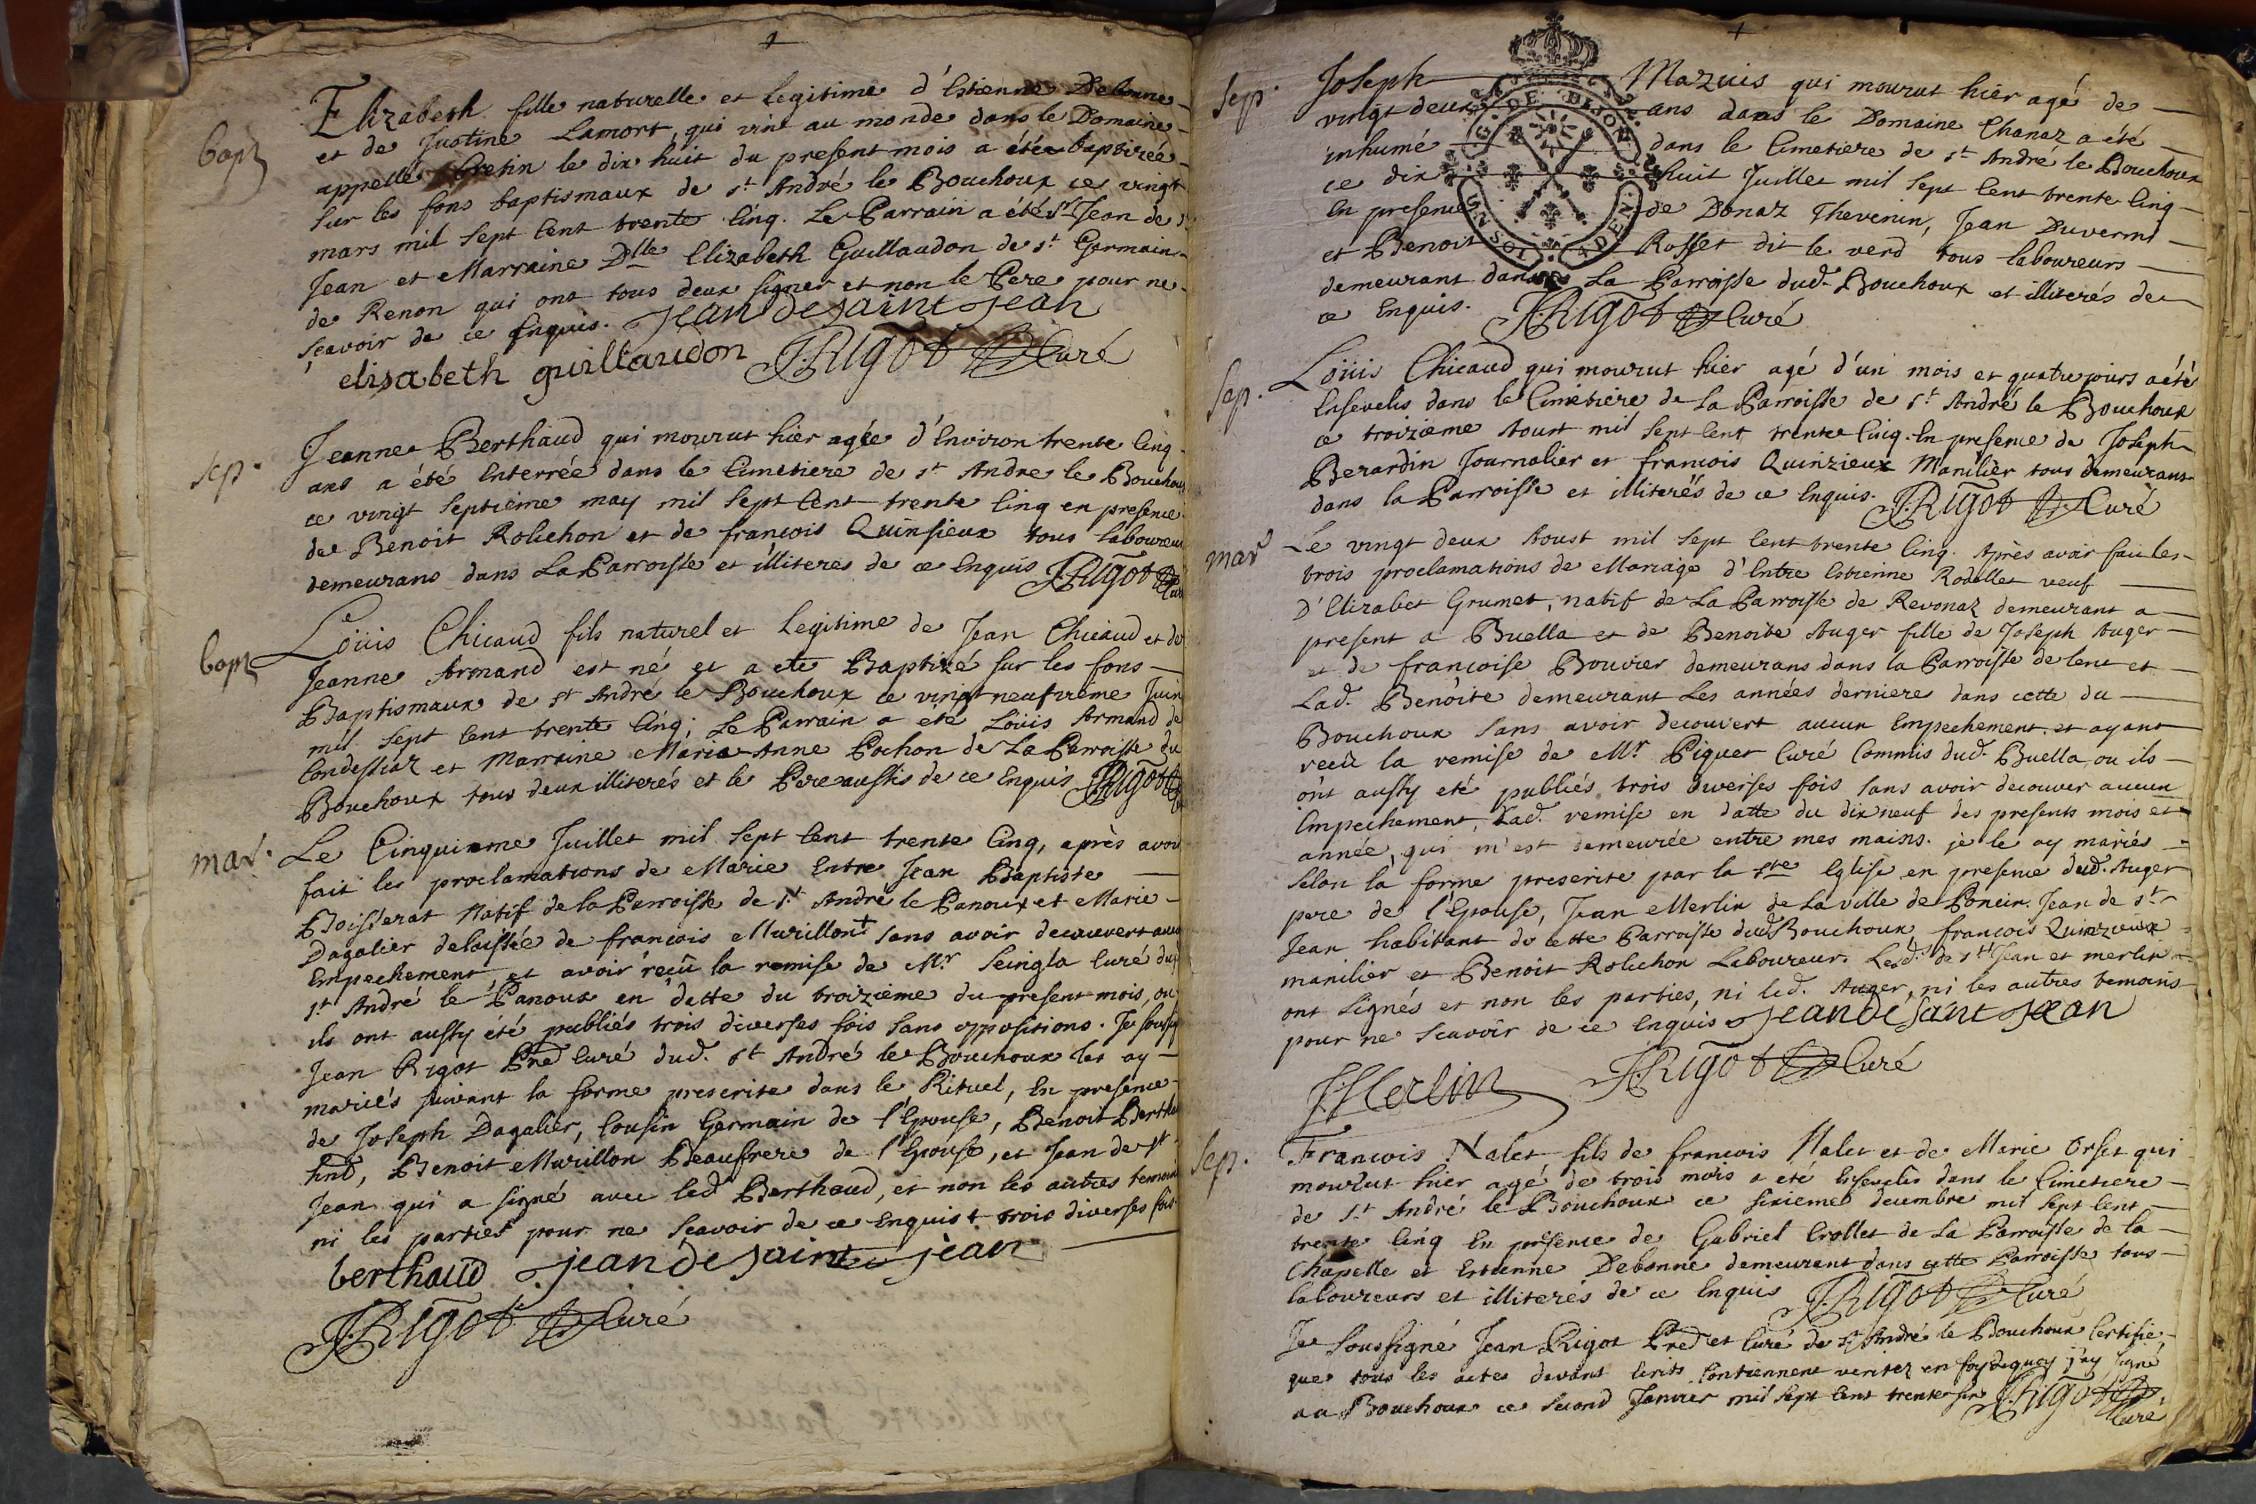 bapt
Elizabeth fille naturelle et legitime d'Estienne Debonne
et de Justine Lamort, qui vint au monde dans le Domaine
appellé Cretin le dix huit du present mois a été baptizée
sur les fons baptismaux de st André le Bouchoux ce vingt
mars mil sept cent trente cinq. Le Parrain a été Sr Jean de st
Jean et Marraine Dlle Elizabeth Guillaudon de st Germain
de Renon qui ont tous deux signer et non le Pere pour ne
scavoir de ce enquis. jean de saint jean
elisabeth guillaudon J. Rigot Curé
sep.
Jeanne Berthaud qui mourut hier agée d'environ trente cinq
ans a été enterrée dans le cimetiere de st Andre le Bouchoux
ce vingt septième may mil sept cent trente cinq en presence
de Benoit Rolichon et de francois Quinsieux tous laboureurs
demeurans dans La Parroisse et illiterés de ce enquis J. Rigot Curé
bapt
Loüis Chicaud fils naturel et legitime de Jean Chicaud et de
Jeanne Armand est né et a eté Baptizé sur les fons
Baptismaux de st André le Bouchoux ce vingt neufvième Juin
mil sept cent trente cinq; Le Parrain a eté Loüis Armand de
Condessiaz et Marraine Marie Anne Pochon de La Parroisse du
Bouchoux tous deux illiterés et le Pere aussis de ce enquis J. Rigot
mar.
Le Cinquieme Juillet mil sept cent trente cinq, après avoir
fait les proclamations de Marie entre Jean Baptiste
Boisserat Natif de la Parroisse de st André le Panoux et Marie
Dagalier delaissée de francois Murillon + sans avoir decouvert aucun
Empechement, et avoir reçû la remise de Mr Seingla Curé dud.
st André le Panoux en datte du troizieme du present mois, ou
ils ont aussy été publiés trois diverses fois sans oppositions. Je soussig
Jean Rigot Pred Curé dud. st André le Bouchoux les ay
mariés suivant la forme prescrite dans le Rituel, En presence
de Joseph Dagalier, Cousin Germain de l'Epouse, Benoit Berthaud
Benoit Murillon Beaufrere de l'Epouse, et Jean de st
Jean qui a signé avec led Berthaud, et non les autres temoins
ni les parties pour ne scavoir de ce enquis + trois diverses fois
berthaud jean de saint jean
J. Rigot Curé
sep.
Joseph Mazuis qui mourut hier agé de
vingt deux ans dans le Domaine Chanaz a été
inhumé dans le Cimetiere de st André le Bouchoux
ce dix huit Juillet mil sept cent trente cinq
En presence de Donaz Thevenin, Jean Duverni
et Benoit Rosset dit le verd tous laboureurs
demeurant dans La Parroisse dud. Bouchoux et illiterés de
ce enquis. J. Rigot Curé
G. DE DIJON
sep.
Loüis Chicaud qui mourut hier agé d'un mois et quatre jours a été
Ensevelis dans le Cimetière de La Parroisse de st André le Bouchoux
ce troizieme Aoust mil sept cent trente cinq. En presence de Joseph
Berardin Journalier et francois Quinzieux Manilier tous demeurans
dans la Parroisse et illiterés de ce enquis. J. Rigot Curé
mar
Le vingt deux Aoust mil sept cent trente cinq. Après avoir fait les
trois proclamations de Mariage d'Entre Estienne Rodellet veuf
D'Elizabet Grumet, natif de La Parroisse de Revonaz demeurant a
present a Buella et de Benoite Auger fille de Joseph Auger
et de francoise Bouvier demeurans dans la Parroisse de lent et
Lad. Benoite demeurant Les années derniere dans cette du
Bouchoux sans avoir decouvert aucun Empechement et ayant
reçû la remise de Mr Piquet Curé Commis dud. Buella, ou ils
ônt aussy eté publiés trois diverses fois sans avoir decouver aucun
Empechement, Lad. remise en datte du dix neuf des presents mois et
année, qui m'est demeurée entre mes mains. je le ay mariés
selon la forme prescrite par la ste Eglise en presence dud. Auger
pere de l'Epouse, Jean Merlin de La ville de Poncin. Jean de st
Jean habitant de cette Parroisse dud Bouchoux, francois Quinzieux
manilier et Benoit Rolichon Laboureur. Lesd. de st Jean et merlin
ont signés et non les parties, ni led. Auger, ni les autres temoins
pour ne scavoir de ce enquis jean de saint jean
J Merlin J. Rigot Curé
sep.
Francois Nalet fils de francois Nalet et de Marie Orset qui
mourut hier agé de trois mois a été Ensevelis dans le Cimetiere
de st André le Bouchoux ce sixieme decembre mil sept cent
trente cinq En présence de Gabriel Crollet de La Parroisse de la
Chapelle et Estienne Debonne demeurent dans cette Parroisse tous
laboureurs et illiterés de ce enquis J. Rigot Curé
Je soussigné Jean Rigot Pred et Curé de st André le Bouchoux Certifie
que tous les actes devant ecrits Contiennent veritez en foy dequoy j'ay signé
au Bouchoux ce second Janvier mil sept cent trente six J. Rigot
Curé